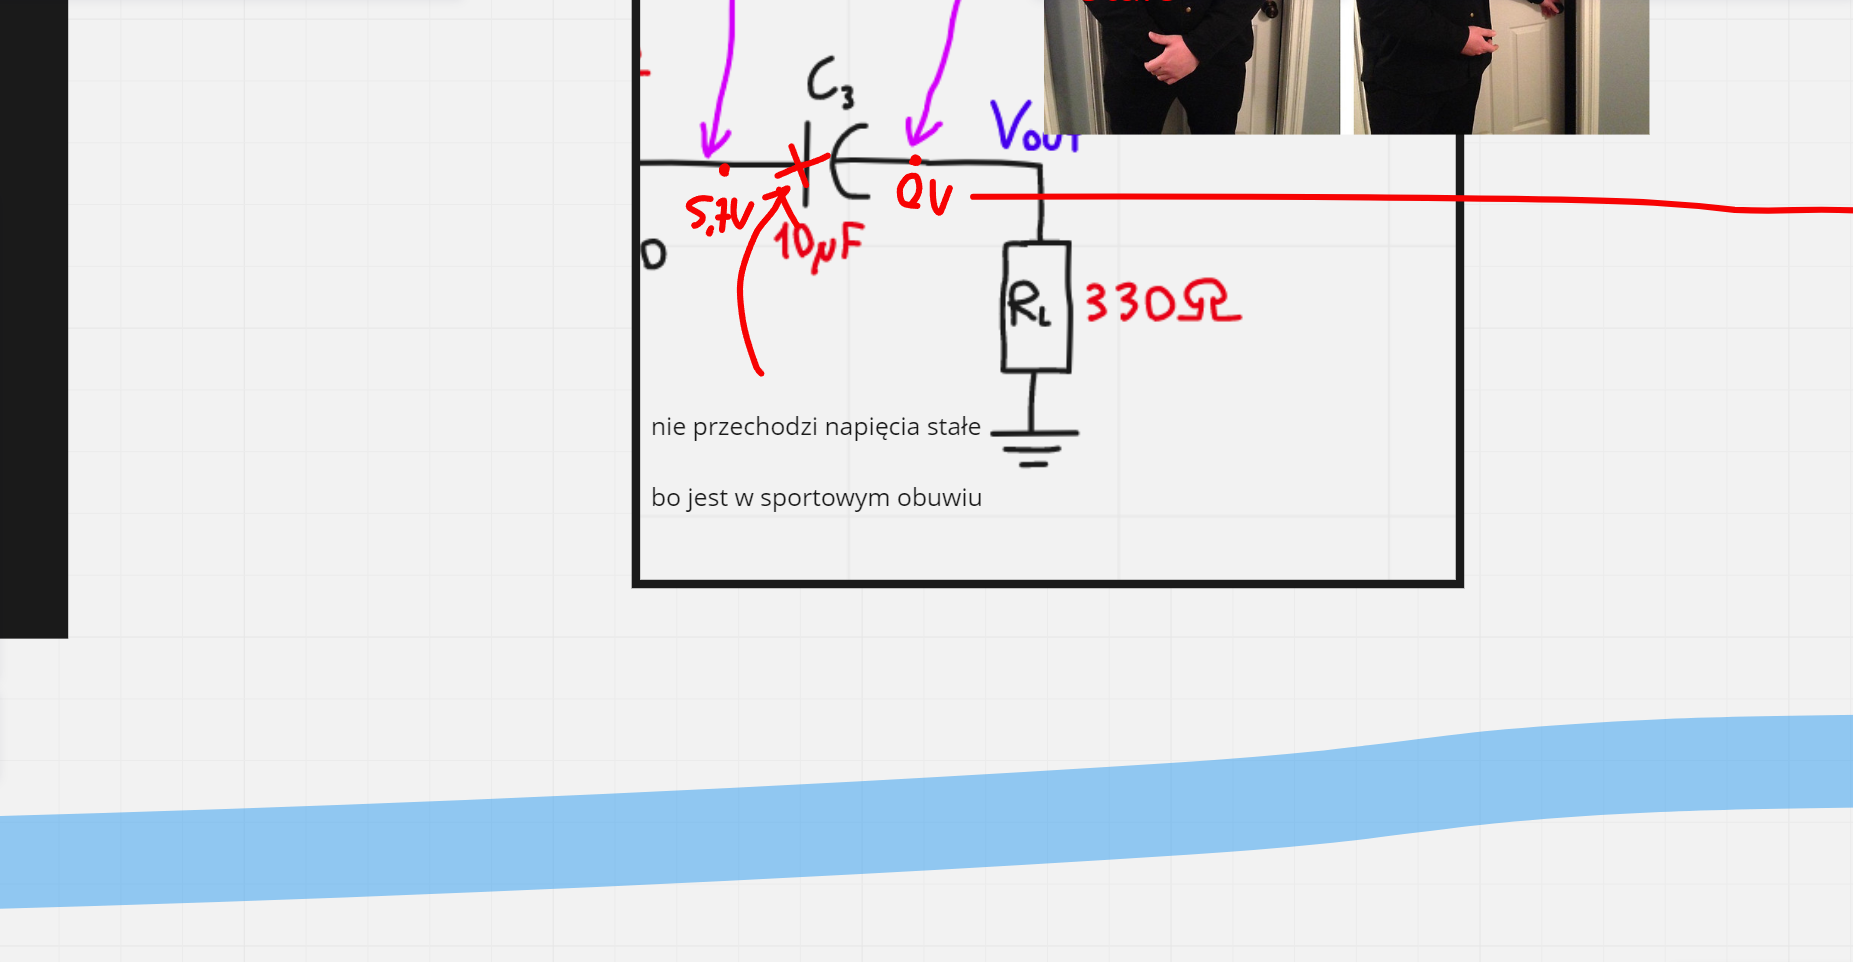 C3
Vout
5,7V
0V
10µF
D
RL
330Ω
nie przechodzi napięcia stałe
bo jest w sportowym obuwiu